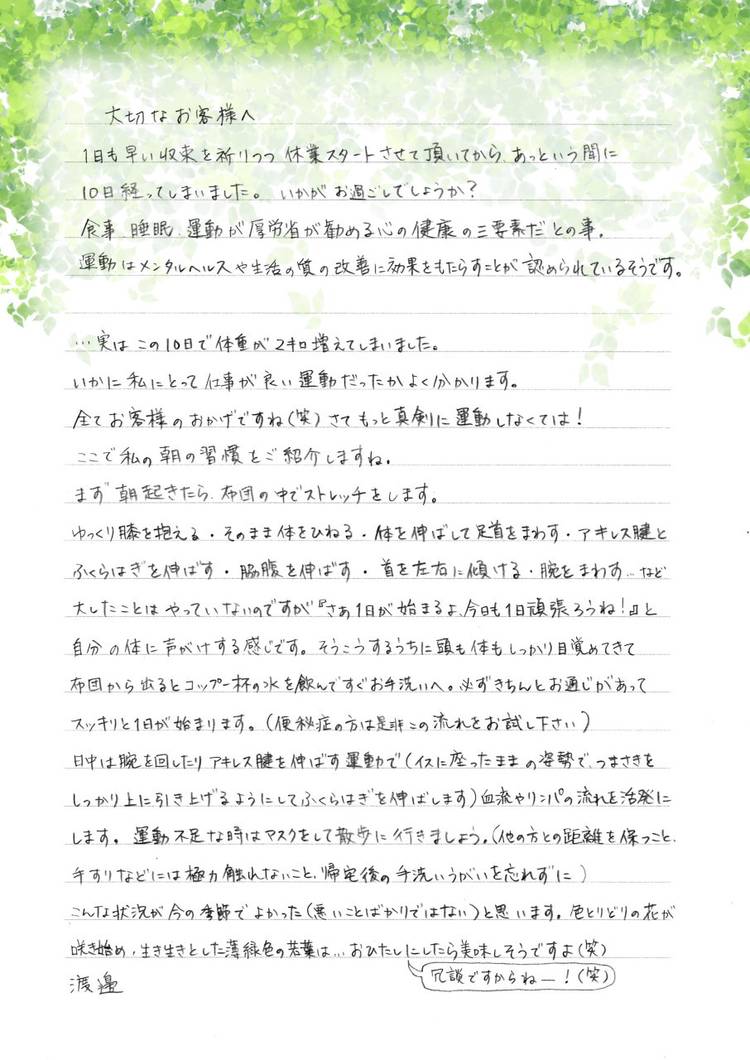 大切なお客様へ
1日も早い収束を祈りつつ休業スタートさせて頂いてから、あっという間に
10日経ってしまいました。いかがお過ごしでしょうか?
食事、睡眠、運動が厚労省が勧める心の健康の三要素だとの事。
運動はメンタルヘルスや生活の質の改善に効果をもたらすことが認められているそうです。
…実はこの10日で体重が2キロ増えてしまいました。
いかに私にとって仕事が良い運動だったかよく分かります。
全てお客様のおかげですね(笑)さてもっと真剣に運動しなくては!
ここで私の朝の習慣をご紹介しますね。
まず朝起きたら、布団の中でストレッチをします。
ゆっくり膝を抱える・そのまま体をひねる・体を伸ばして足首をまわす・アキレス腱と
ふくらはぎを伸ばす・脇腹を伸ばす・首を左右に傾ける・腕をまわす…など
大したことはやっていないのですが『さあ1日が始まるよ、今日も1日頑張ろうね!』と
自分の体に声がけする感じです。そうこうするうちに頭も体もしっかり目覚めてきて
布団から出るとコップ一杯の水を飲んですぐお手洗いへ。必ずきちんとお通じがあって
スッキリと1日が始まります。(便秘症の方は是非この流れをお試し下さい)
日中は腕を回したりアキレス腱を伸ばす運動で(イスに座ったままの姿勢で、つまさきを
しっかり上に引き上げるようにしてふくらはぎを伸ばします)血流やリンパの流れを活発に
します。運動不足な時はマスクをして散歩に行きましょう。(他の方との距離を保つこと、
手すりなどには極力触れないこと、帰宅後の手洗いうがいを忘れずに)
こんな状況が今の季節でよかった(悪いことばかりではない)と思います。色とりどりの花が
咲き始め、生き生きとした薄緑色の若葉は…おひたしにしたら美味しそうですよ(笑)
冗談ですからねー!(笑)
渡邉